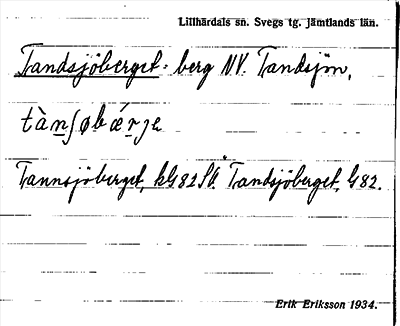 Lillhärdals sn. Svegs tg. Jämtlands län.
Tandsjöberget: berg NV. Tandsjön,
tànʃøbǽrje
Tannsjöberget, kG82SO. Tandsjöberget, G82.
Erik Eriksson 1934.